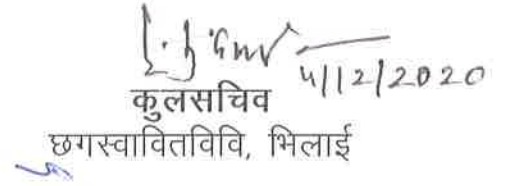 4/12/2020
कुलसचिव
छगस्वावितविवि, भिलाई